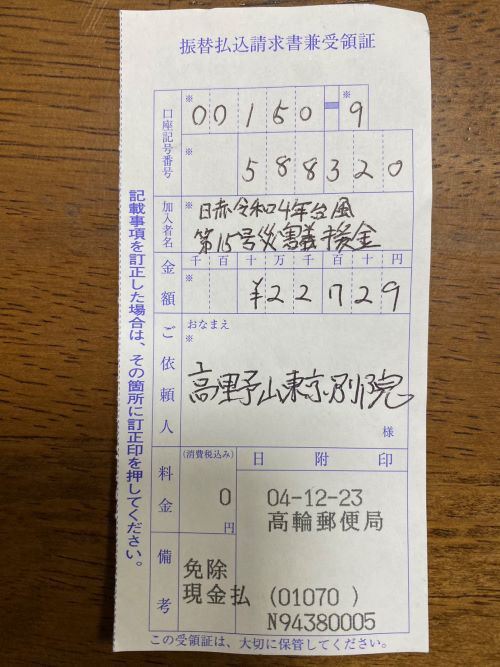 振替払込請求書兼受領証
口座記号番号
※ 00150-9
※ 588320
加入者名
※ 日赤令和4年台風
第15号災害義援金
金額
千百十万千百十円
※ ¥22729
ご依頼人
おなまえ
※
高野山東京別院
様
料金
(消費税込み)
0
円
日附印
04-12-23
高輪郵便局
備考
免除
現金払 (01070 )
N94380005
この受領証は、大切に保管してください。
記載事項を訂正した場合は、その箇所に訂正印を押してください。